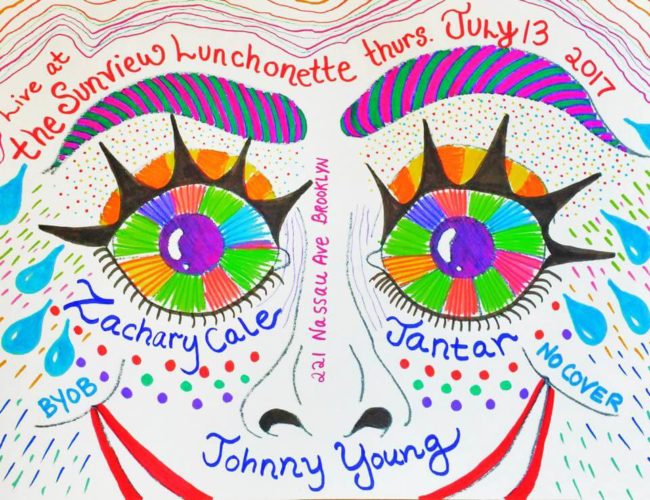 Live at
the Sunview Lunchonette thurs. July 13
2017
221 Nassau Ave Brooklyn
Zachary Cale
Jantar
BYOB
NO COVER
Johnny Young